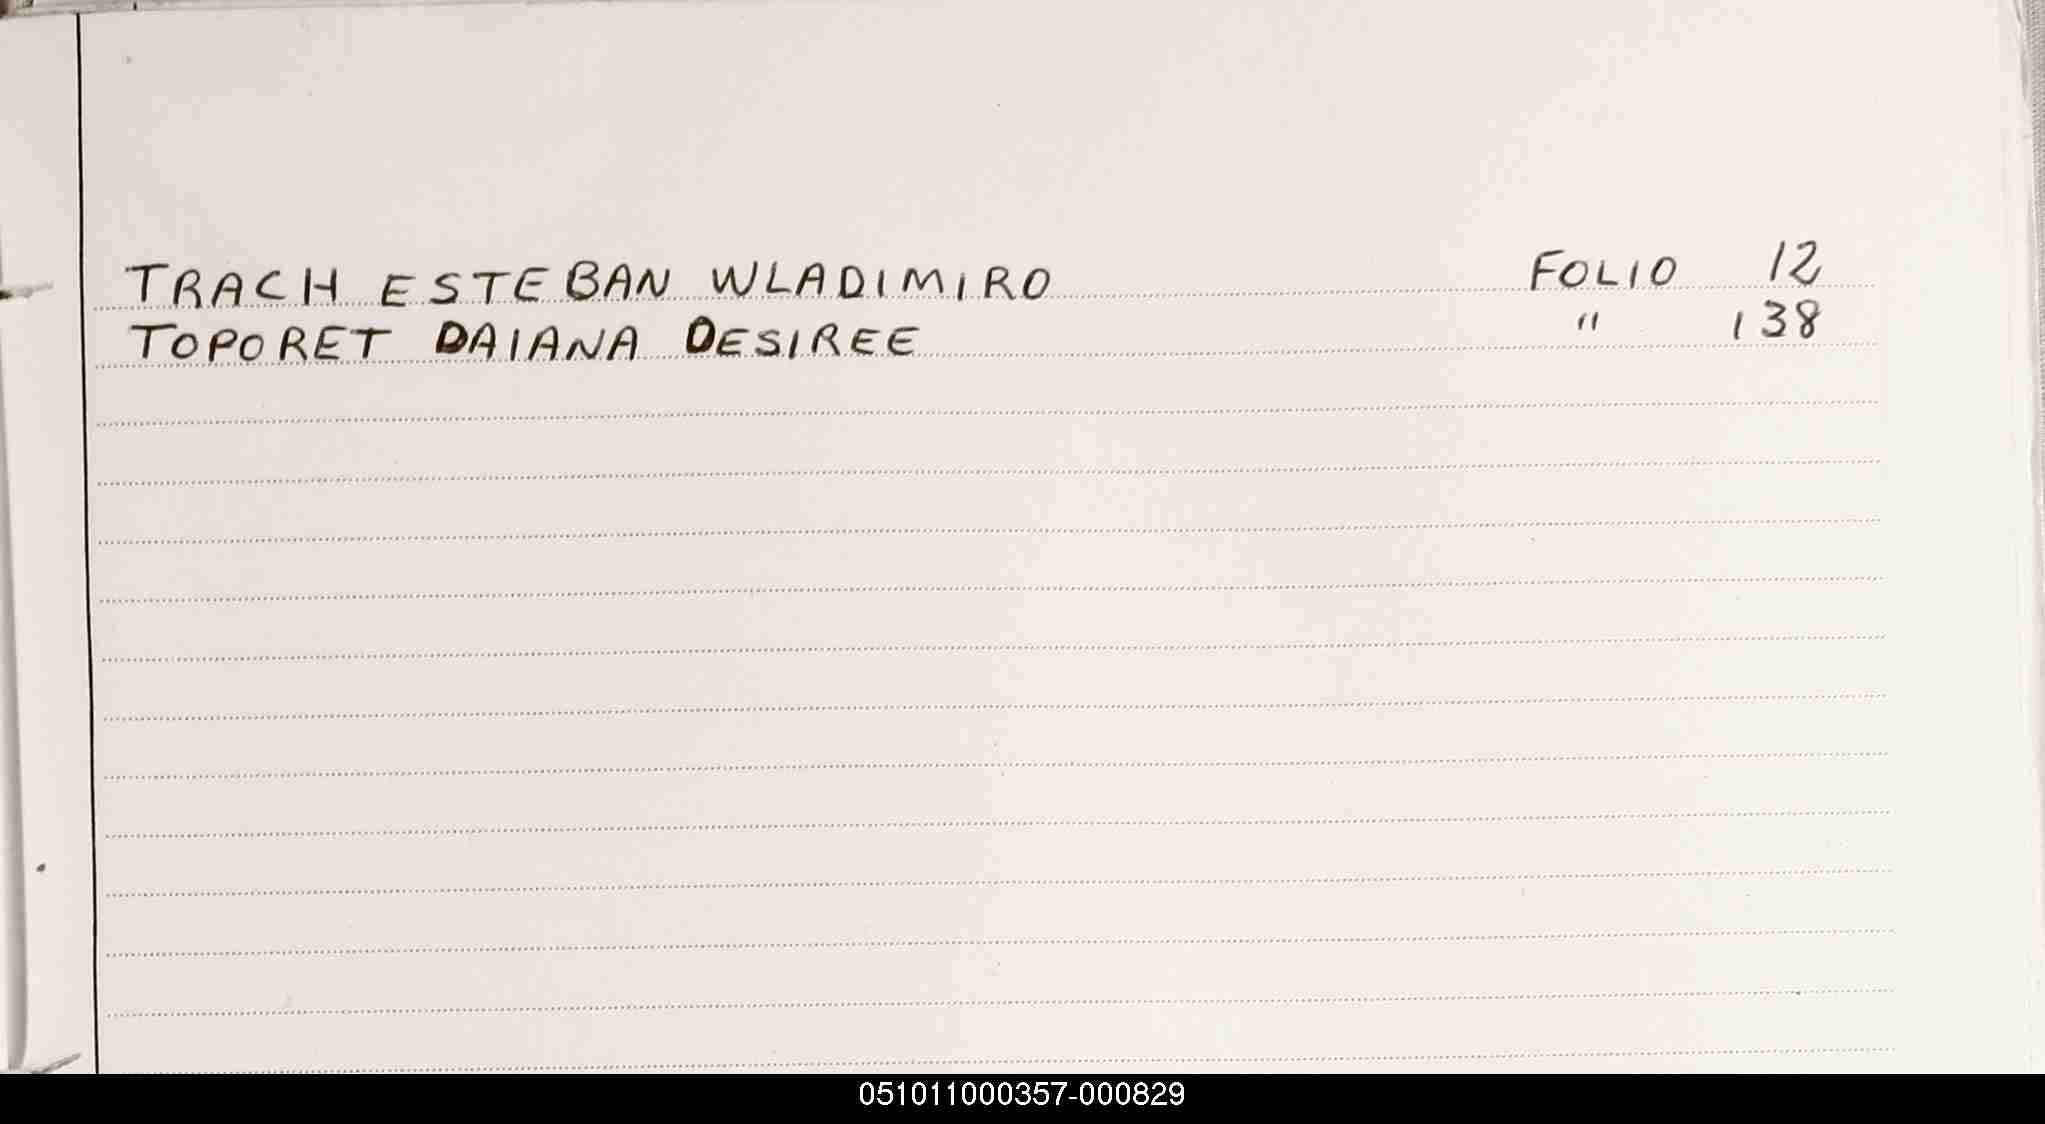 TRACH ESTEBAN WLADIMIRO FOLIO 12
TOPORET DAIANA DESIREE " 138
051011000357-000829